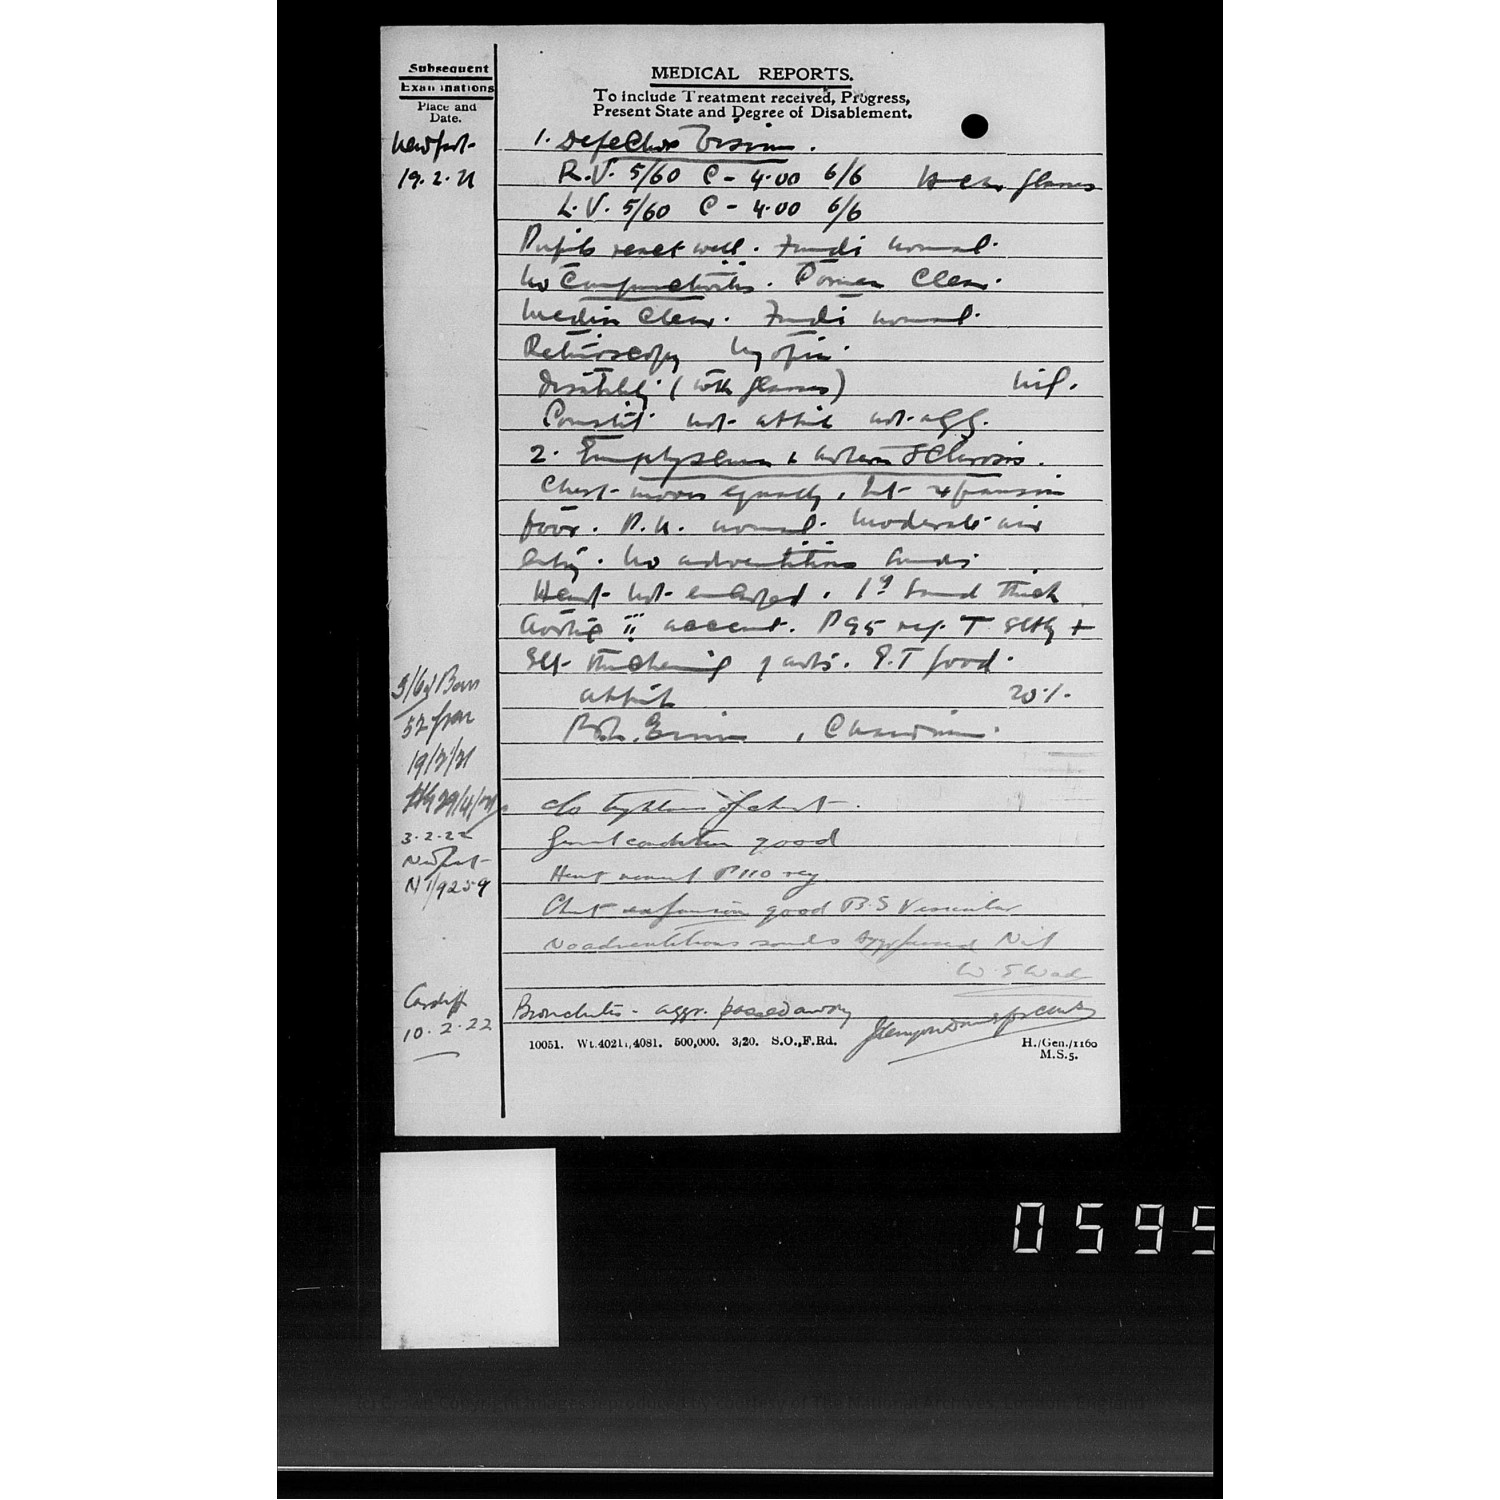 Subsequent
Examinations
Place and
Date.
MEDICAL REPORTS.
To include Treatment received, Progress,
Present State and Degree of Disablement.
Newport
19.2.21
1. Defective Vision.
R.V. 5/60 C - 4.00 6/6 glasses
L.V. 5/60 C - 4.00 6/6
Pupils react well. Fundi normal.
No Conjunctivitis. Cornea Clear.
Media Clear. Fundi normal.
Retinoscopy Myopia.
Disability (with glasses) nil.
Constit. not attrib not agg.
2. Emphysema & Arterio Sclerosis.
Chest moves equally, but expansion
poor. P.N. normal. Moderate air
entry. No adventitious sounds
Heart not enlarged. 1st Sound thick
Aortic accent. P 95 reg. T Sltly +
Slt thickening of arts. G.T good.
attrib 20%
, Chairman.
52
19/2/21
29/4/21
3.2.22
Newport
N1/9259
c/o tightness of chest.
General condition good
Heart normal P 110 reg.
Chest expansion good B.S Vesicular
No adventitious sounds Nil
W. S Wade
Cardiff
10.2.22
Bronchitis - aggr. passed away
10051. Wt.4021,,4081. 500,000. 3/20. S.O.,F.Rd.
H./Gen./1160
M.S.5.
0595
(c) Crown Copyright Images reproduced by courtesy of The National Archives, London, England